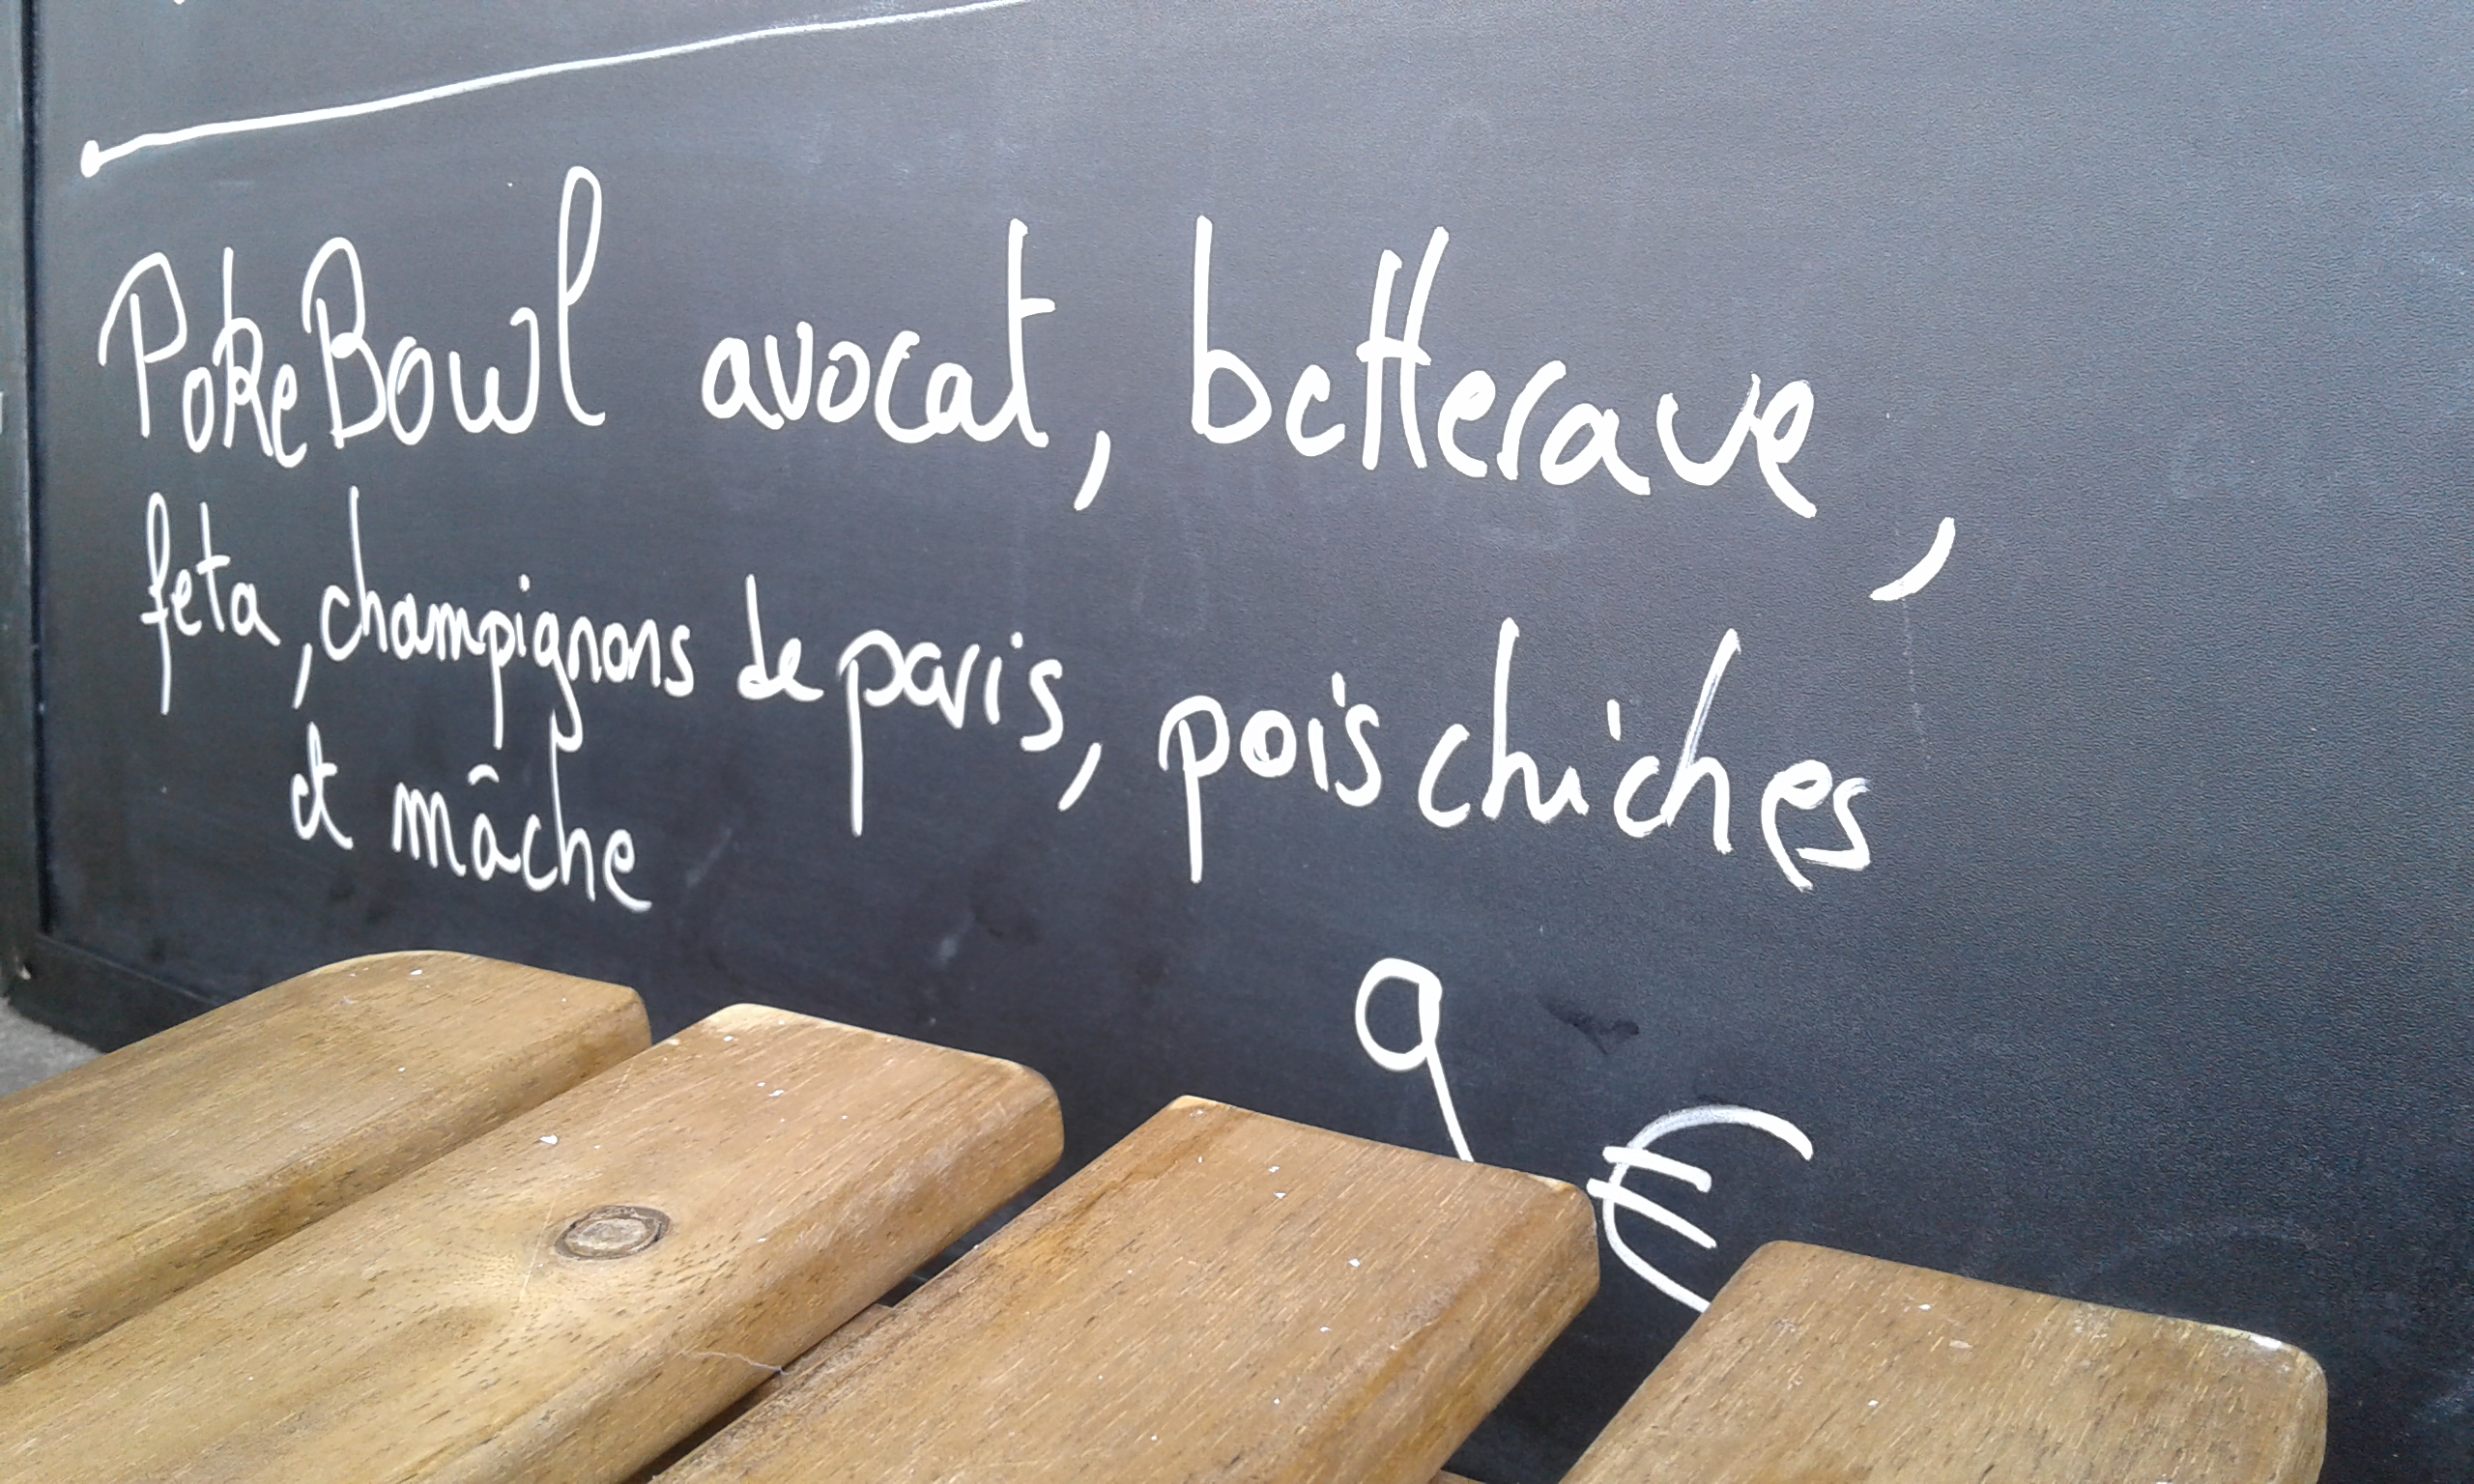 PokeBowl avocat, betterave,
feta, champignons de paris, pois chiches
et mâche
9 €